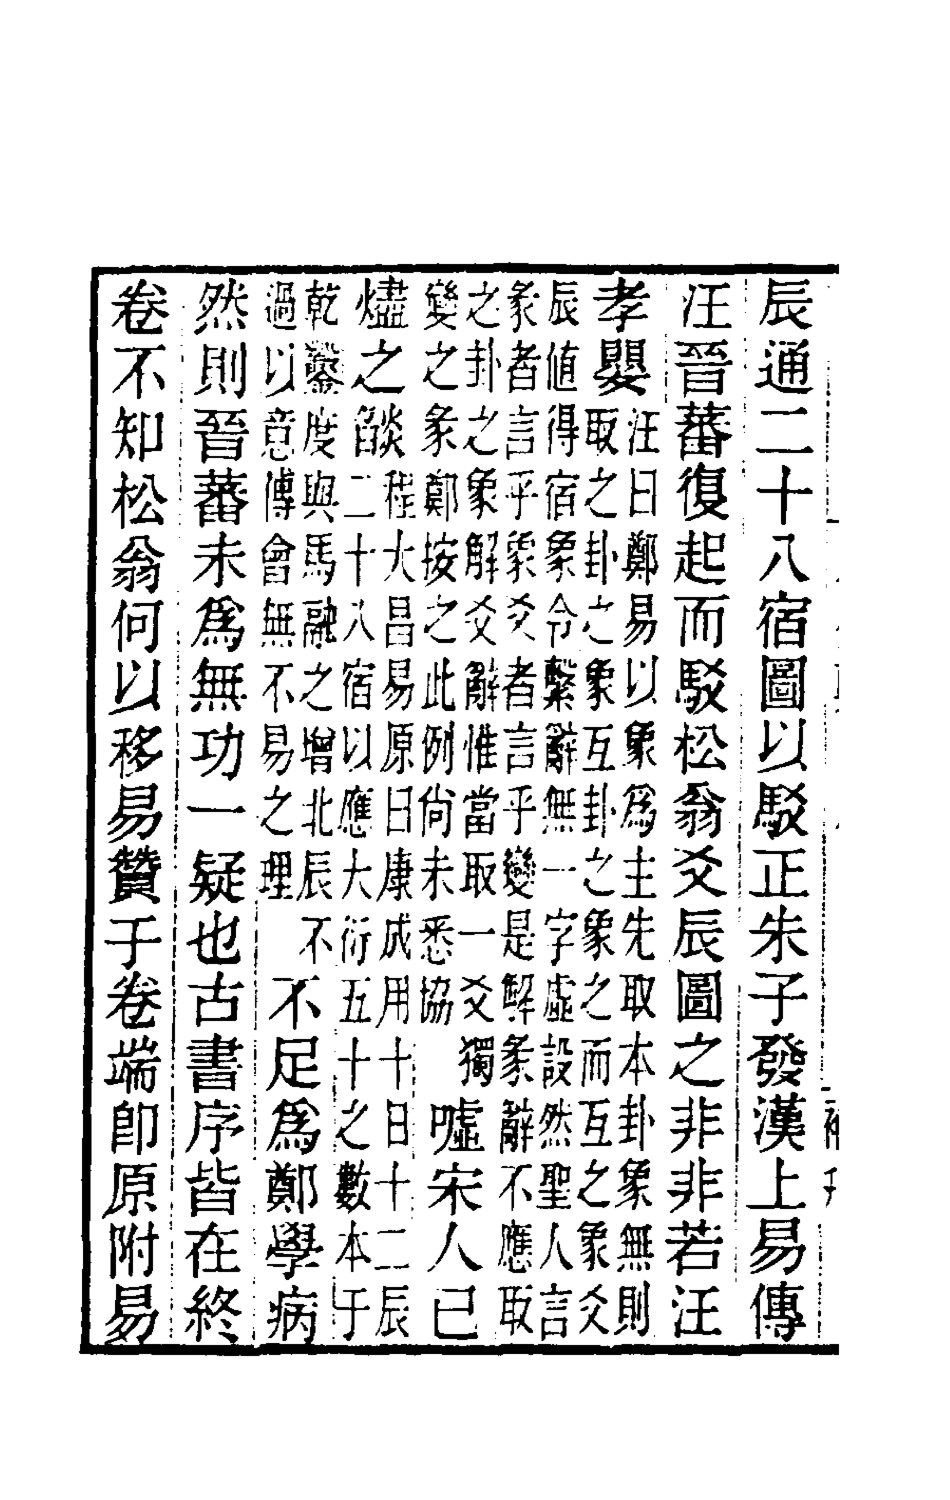 辰通二十八宿圖以駁正朱子發漢上易傳
汪晉蕃復起而駁松翁爻辰圖之非非若汪
孝嬰
汪曰鄭易以象爲主先取本卦象無則
取之卦之象互卦之象之而互之象爻
辰値得宿象令繫辭無一字虛設然聖人言
彖者言乎象爻者言乎變是解彖辭不應取
之卦之象解爻辭惟當取一爻獨
變之象鄭按之此例尚未悉協
噓宋人已
燼之燄
程大昌易原曰康成用十日十二辰
二十八宿以應大衍五十之數本于
乾鑿度與馬融之增北辰不
過以意傅會無不易之理
不足爲鄭學病
然則晉蕃未爲無功一疑也古書序皆在終
卷不知松翁何以移易贊于卷端卽原附易